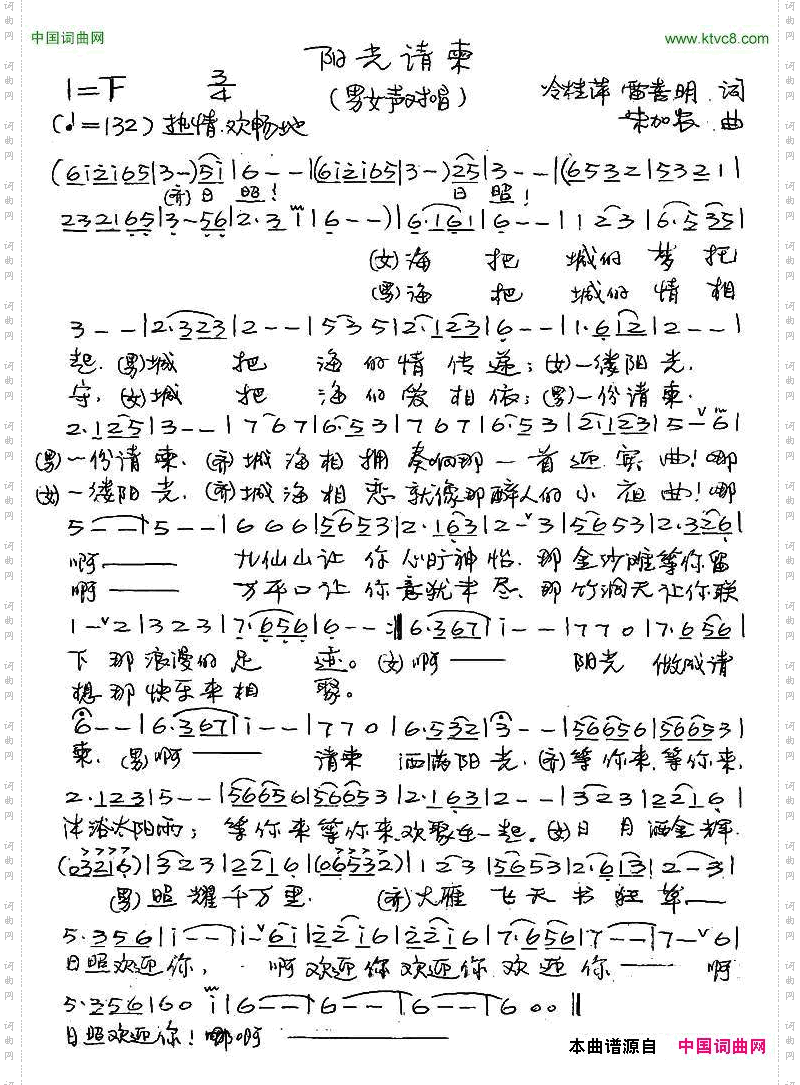 中国词曲网 www.ktvc8.com
阳光请柬
1=F 3/4 (男女声对唱) 冷桂萍 雷喜明 词
(♩=132) 热情.欢畅地 朱加农 曲
(612165|3-)51|6--|(612165|3-)25|3--|(6532|5321|
(齐)日 照! 日 照!
232165|3-56|2·31|6--)|6·161|6--|123|6·535|
(女)海 把 城的 梦 托
(男)海 把 城的 情 相
3--|2·323|2--|535|2·123|6--|1·612|2--|
起.(男)城 把 海的情 传 递;(女)一缕阳光.
守,(女)城 把 海的爱 相 依;(男)一份请柬.
2·125|3--|767|6·53|767|6·53|2·123|5-6|
(男)一份请柬.(齐)城海相拥 奏响那 一首迎宾曲!哪
(女)一缕阳光.(齐)城海相恋 就像那醉人的小夜曲!哪
5--|5--|666|5653|2·163|2-3|5653|2·326|
啊—— 九仙山让 你 心旷神怡.那 金沙滩等你留
啊—— 万平口让 你 意犹未尽、那 竹洞天让你联
1-2|323|7·656|6--:‖6·367|1--|770|7·656|
下 那浪漫的足 迹。(女)啊—— 阳光 做成请
想那快乐来相 聚。
6--|6·367|1--|770|6·532|3--|56656|56653|
柬.(男)啊—— 请柬 洒满阳光.(齐)等 你来,等你来,
2·123|5--|56656|56653|2·163|2--|323|2216|
沐浴太阳雨; 等你来等你来,欢聚在一起。(女)日 月 洒金辉.
(03216)|323|2216|(06532)|123|5653|2·613|2-3|
(男)照 耀千万里. (齐)大雁 飞天 书 狂 草——
5·356|1--|1-61|2216|2216|7·656|7--|7-6|
日照欢迎你, 啊欢迎你欢迎你 欢 迎 你—— 啊
5·356|601|6--|6--|6--|600‖
日照欢迎你!哪啊——
本曲谱源自 中国词曲网